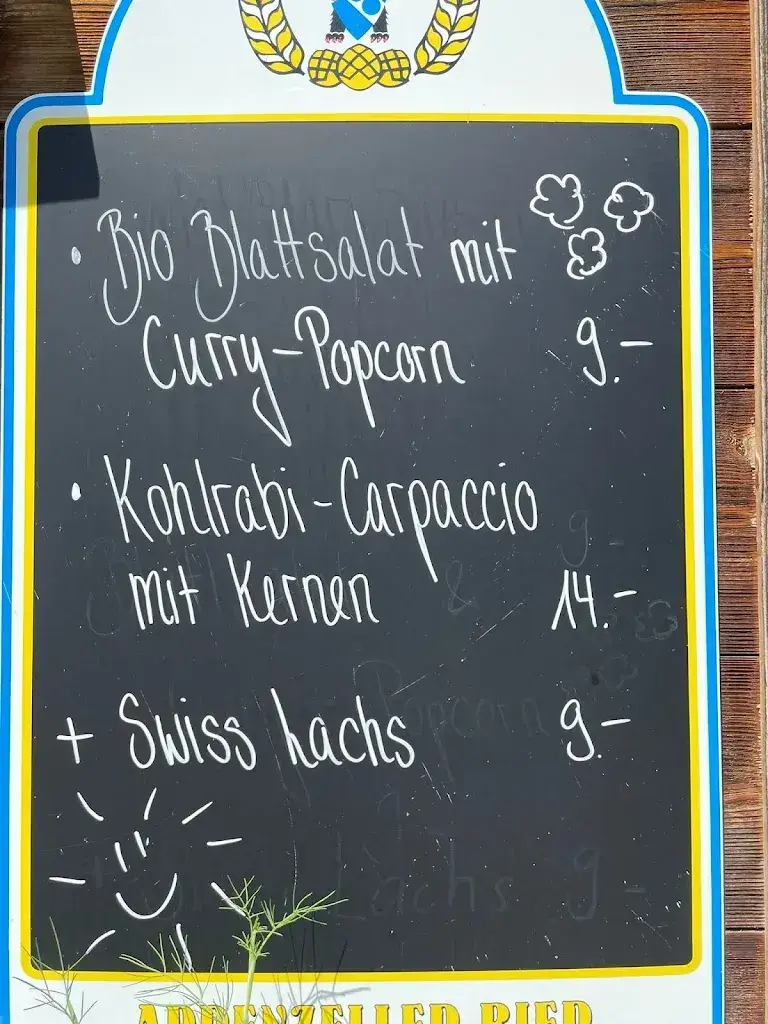 • Bio Blattsalat mit
Curry-Popcorn 9.-
• Kohlrabi-Carpaccio
mit Kernen 14.-
+ Swiss Lachs 9.-
APPENZELLER BIER